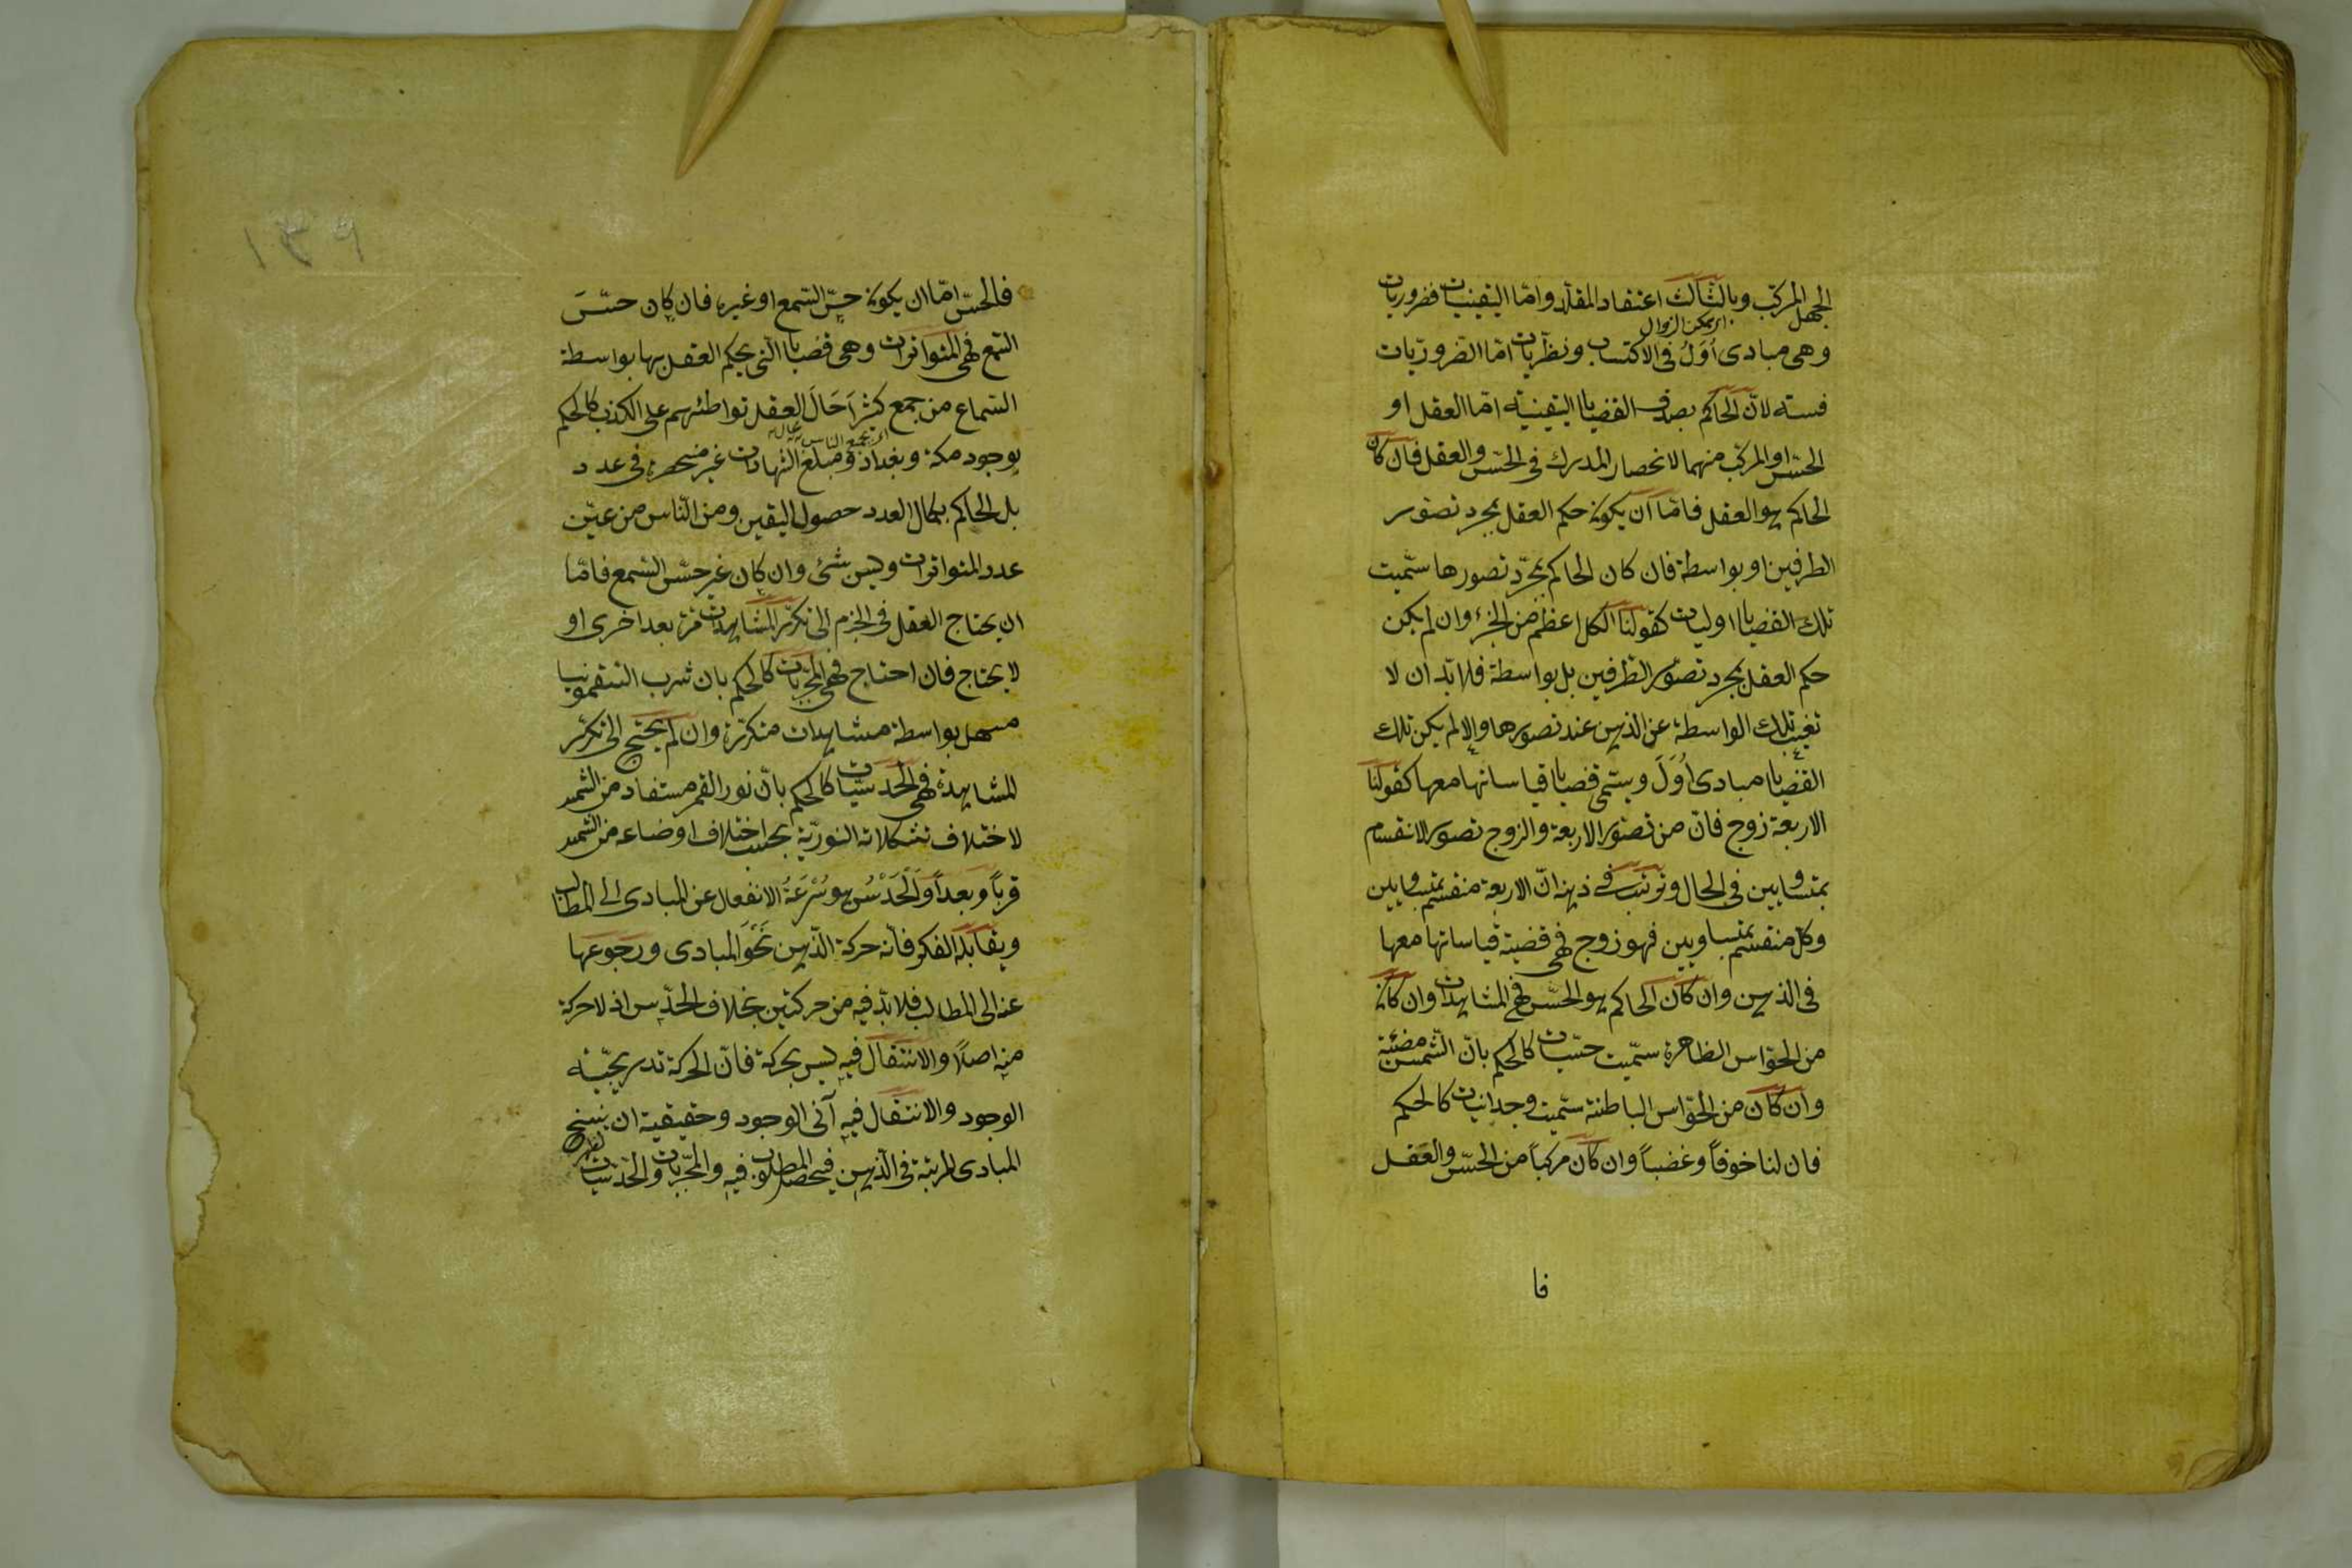 الجهل المركب وبالثالث اعتقاد المقلد واما اليقينيات فضروريات
اى يمكن الزوال
وهى مبادى اُوَلُ فى الاكتساب ونظريات امّا الضروريّات
فستة لانّ الحاكم بصدق القضايا اليقينية امّا العقل او
الحسّ او المركب منهما لانحصار المدرك فى الحسّ والعقل فان كان
الحاكم هو العقل فامّا ان يكون حكم العقل بمجرد تصور
الطرفين او بواسطة فان كان الحاكم بمجرّد تصورها سمّيت
تلك القضايا اوليات كقولنا الكل اعظم من الجزء وان لم يكن
حكم العقل بمجرد تصوّر الطرفين بل بواسطة فلا بدّ ان لا
تغيب تلك الواسطة عن الذهن عند تصورها والا لم يكن تلك
القضايا مبادى اُوَلَ ويسمّى قضايا قياساتها معها كقولنا
الاربعة زوج فانّ من تصوّر الاربعة والزوج تصور الانقسام
بمتساويين فى الحال وترتب فى ذهنه انّ الاربعة منقسم بمتساويين
وكل منقسم بمتساويين فهو زوج فهى قضية قياساتها معها
فى الذهن وان كان الحاكم هو الحسّ فهى المشاهدات وان كان
من الحوّاس الظاهرة سمّيت حسّيات كالحكم بانّ الشمس مضيئة
وان كان من الحوّاس الباطنة سمّيت وجدانيات كالحكم
فان لنا خوفاً وغضباً وان كان مركباً من الحسّ والعقل
فا
١٣٩
فالحسّ امّا ان يكون حسّ السّمع او غيره فان كان حسّ
السّمع فهى المتواترات وهى قضايا الّتى يحكم العقل بها بواسطة
السّماع من جمع كثير احال العقل تواطئهم على الكذب كالحكم
بوجود مكة وبغداد ومبلغ الشهادات غير منحصرة فى عدد
بل الحاكم بكمال العدد حصول اليقين ومن النّاس من عيّن
عدد المتواترات وليس شئ وان كان غير حسّ السّمع فامّا
ان يحتاج العقل فى الجزم الى تكرّر المشاهدات مرّة بعد اخرى او
لا يحتاج فان احتاج فهى المجرّبات كالحكم بان شرب السقمونيا
مسهل بواسطة مشاهدات متكررّة وان لم يحتج الى تكرّر
المشاهدة فهى الحدسيّات كالحكم بانّ نور القمر مستفاد من الشمس
لاختلاف تشكلاته النوريّة بحسب اختلاف اوضاعه من الشمس
قرباً وبعداً وَالْحَدْسُ هو سُرْعَةُ الانفعال عن المبادى الى المطالب
ويقابله الفكر فانّه حركة الذّهن نَحْوَ المبادى ورجوعها
عنه الى المطالب فلا بدّ فيه من حركتين بخلاف الحدّس اذ لا حركة
منه اصلاً والانتقال فيه ليس بحركة فانّ الحركة تدريجيّة
الوجود والانتقال فيه آنى الوجود وحقيقية ان يسنح
المبادى المرتبة فى الذّهن فيحصل المطلوب فيه والمجرّبات والحدّسيات